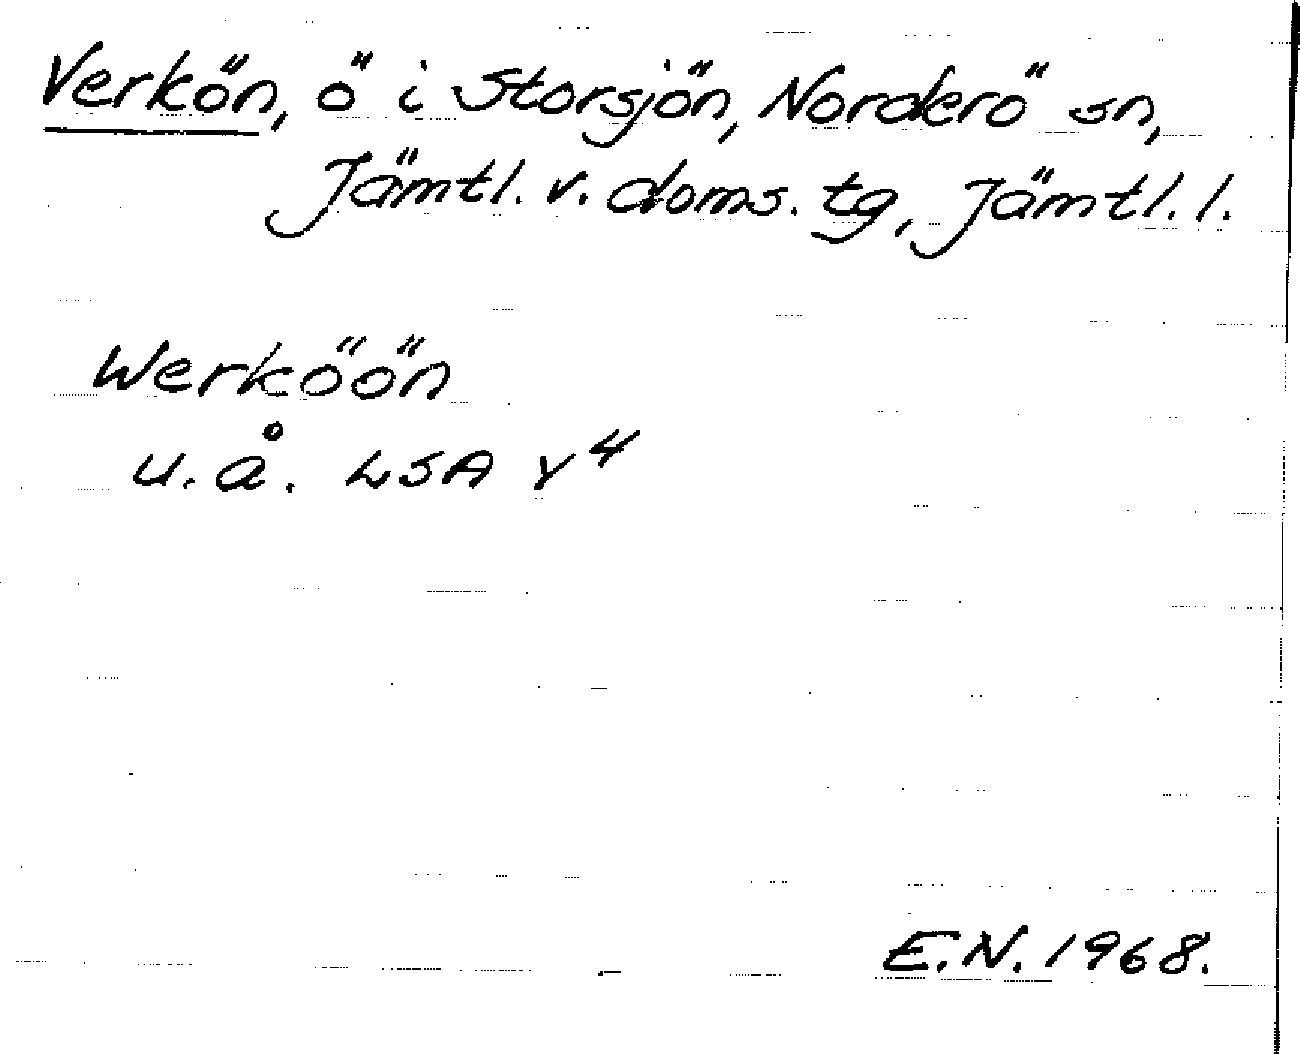 Verkön, ö i Storsjön, Norderö sn,
Jämtl. v. doms. tg, Jämtl. l.
Werköön
u.å. LSA Y4
E.N. 1968.